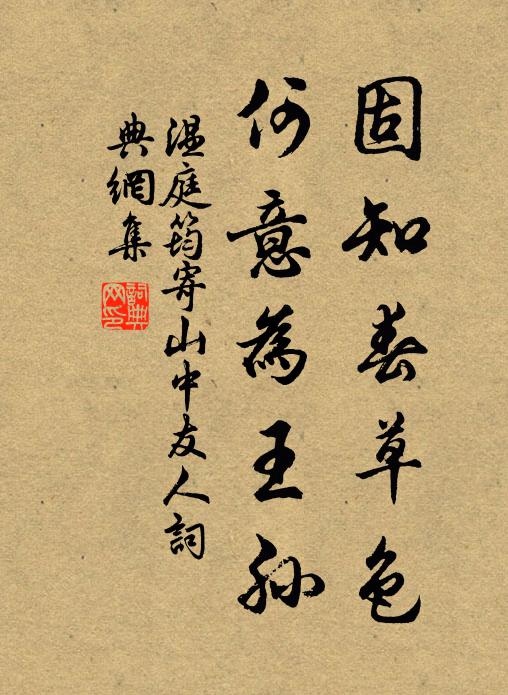 固知春草色
何意為王孫
溫庭筠寄山中友人詞
典網集
詞典
网印